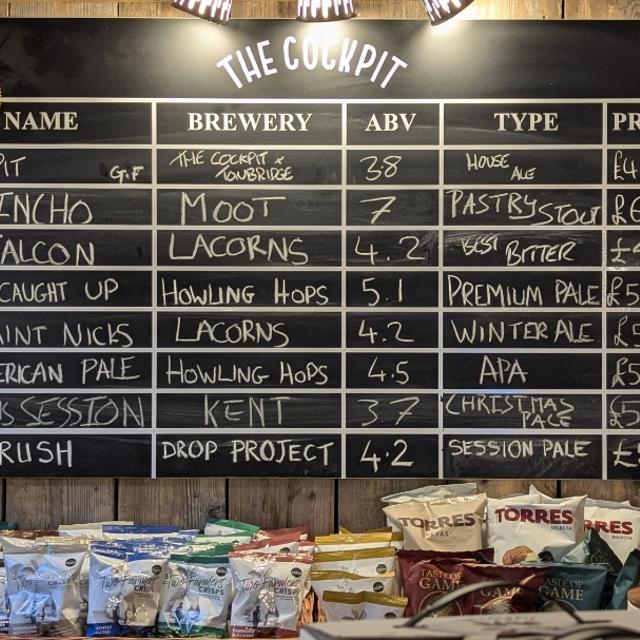 THE COCKPIT
NAME BREWERY ABV TYPE PR
PIT G.F THE COCKPIT x TONBRIDGE 38 HOUSE ALE £4
INCHO MOOT 7 PASTRY STOUT £6
ALCON LACORNS 4.2 BEST BITTER £4
CAUGHT UP HOWLING HOPS 5.1 PREMIUM PALE £5
AINT NICKS LACORNS 4.2 WINTER ALE £5
ERICAN PALE HOWLING HOPS 4.5 APA £5
SSESSION KENT 3.7 CHRISTMAS PACE £5
RUSH DROP PROJECT 4.2 SESSION PALE £
TORRES
SELECTA
TORRES
RRES
SELECTA
Two Farmers
CRISPS
LIGHTLY SALTED
Two Farmers
CRISPS
Two Farmers
CRISPS
TASTE OF GAME
GAME
TASTE OF GAME